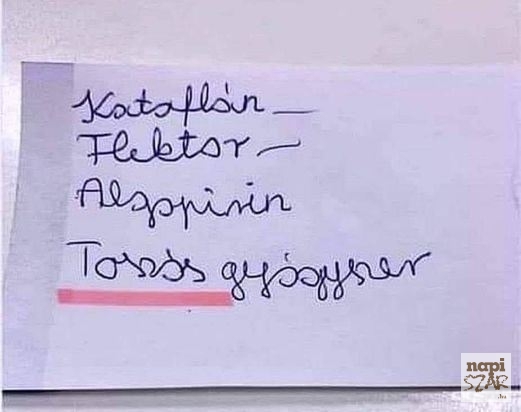 Kataflán —
Flektor —
Algopirin
Toszós gyógyszer
napi
SZAR
.hu